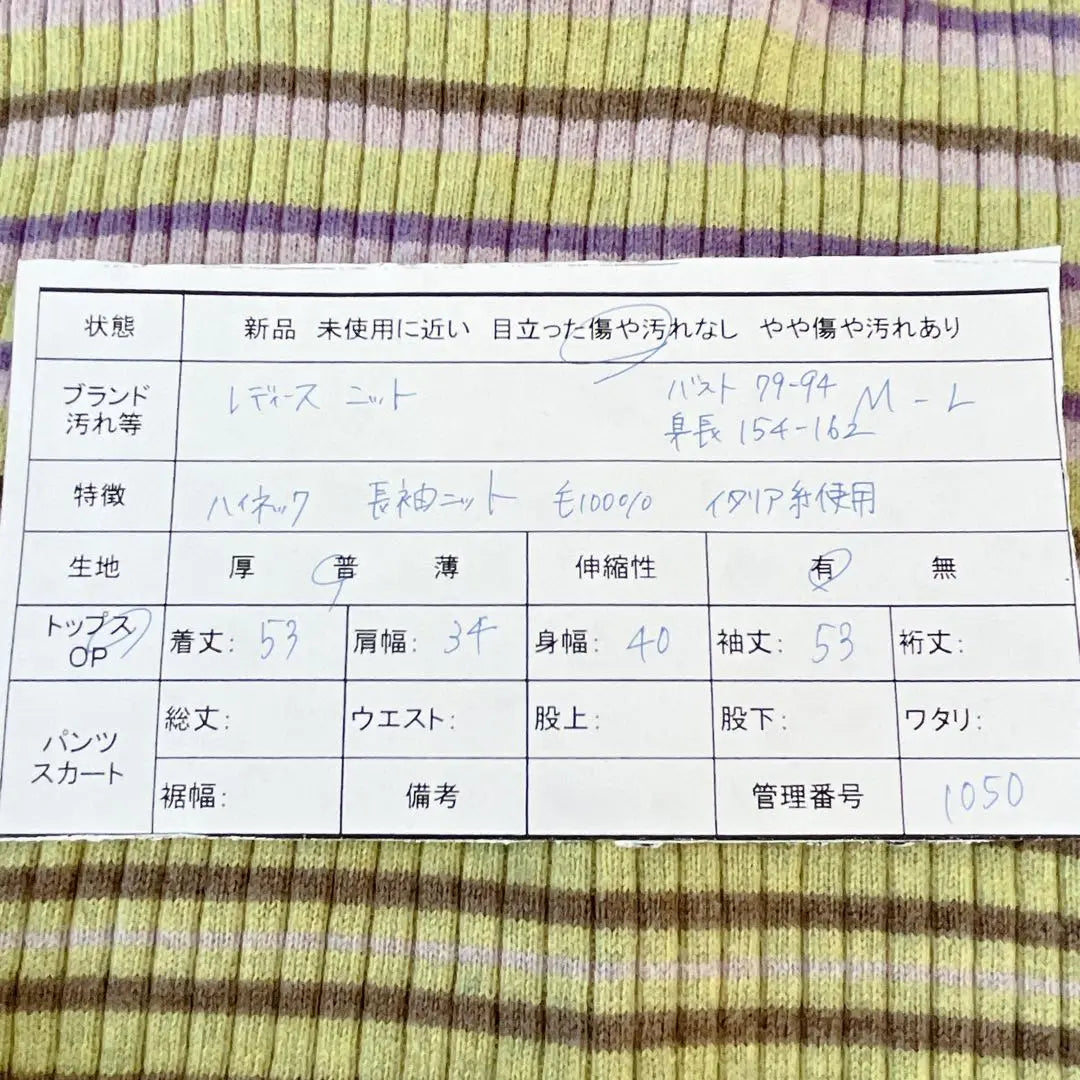 状態 新品 未使用に近い 目立った傷や汚れなし やや傷や汚れあり
ブランド 汚れ等 レディース ニット バスト 79-94 M-L
身長 154-162
特徴 ハイネック 長袖ニット 毛100% イタリア糸使用
生地 厚 普 薄 伸縮性 有 無
トップス OP 着丈: 53 肩幅: 34 身幅: 40 袖丈: 53 裄丈:
パンツ スカート 総丈: ウエスト: 股上: 股下: ワタリ:
裾幅: 備考 管理番号 1050